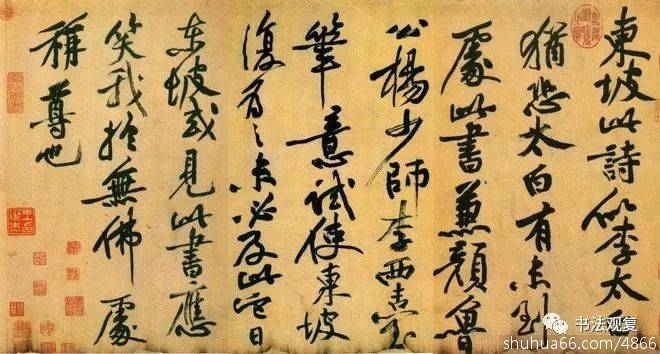 東坡此詩似李太白
猶恐太白有未到
處此書兼顏魯
公楊少師李西臺
筆意試使東坡
復為之未必及此它日
東坡或見此書應
笑我於無佛處
稱尊也
书法观复
shuhua66.com/4866